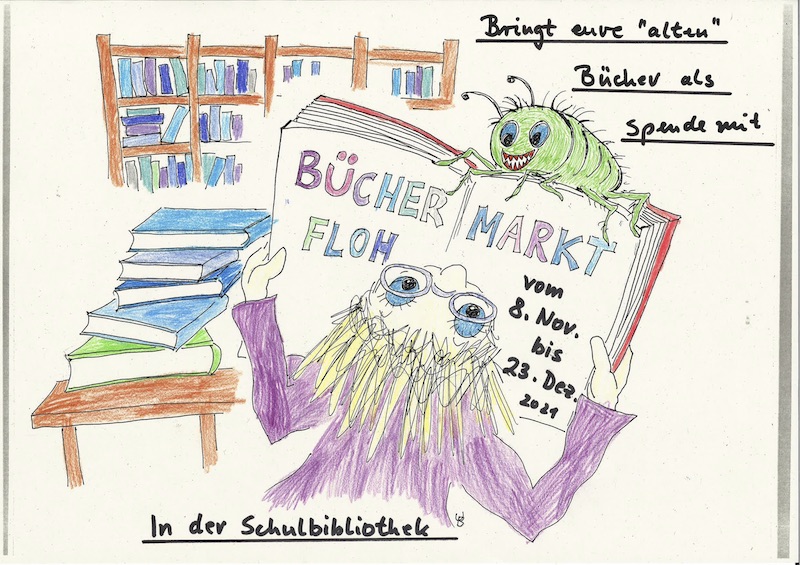 Bringt eure "alten"
Bücher als
spende mit
BÜCHER
FLOH
MARKT
vom
8. Nov.
bis
23. Dez.
2021
In der Schulbibliothek